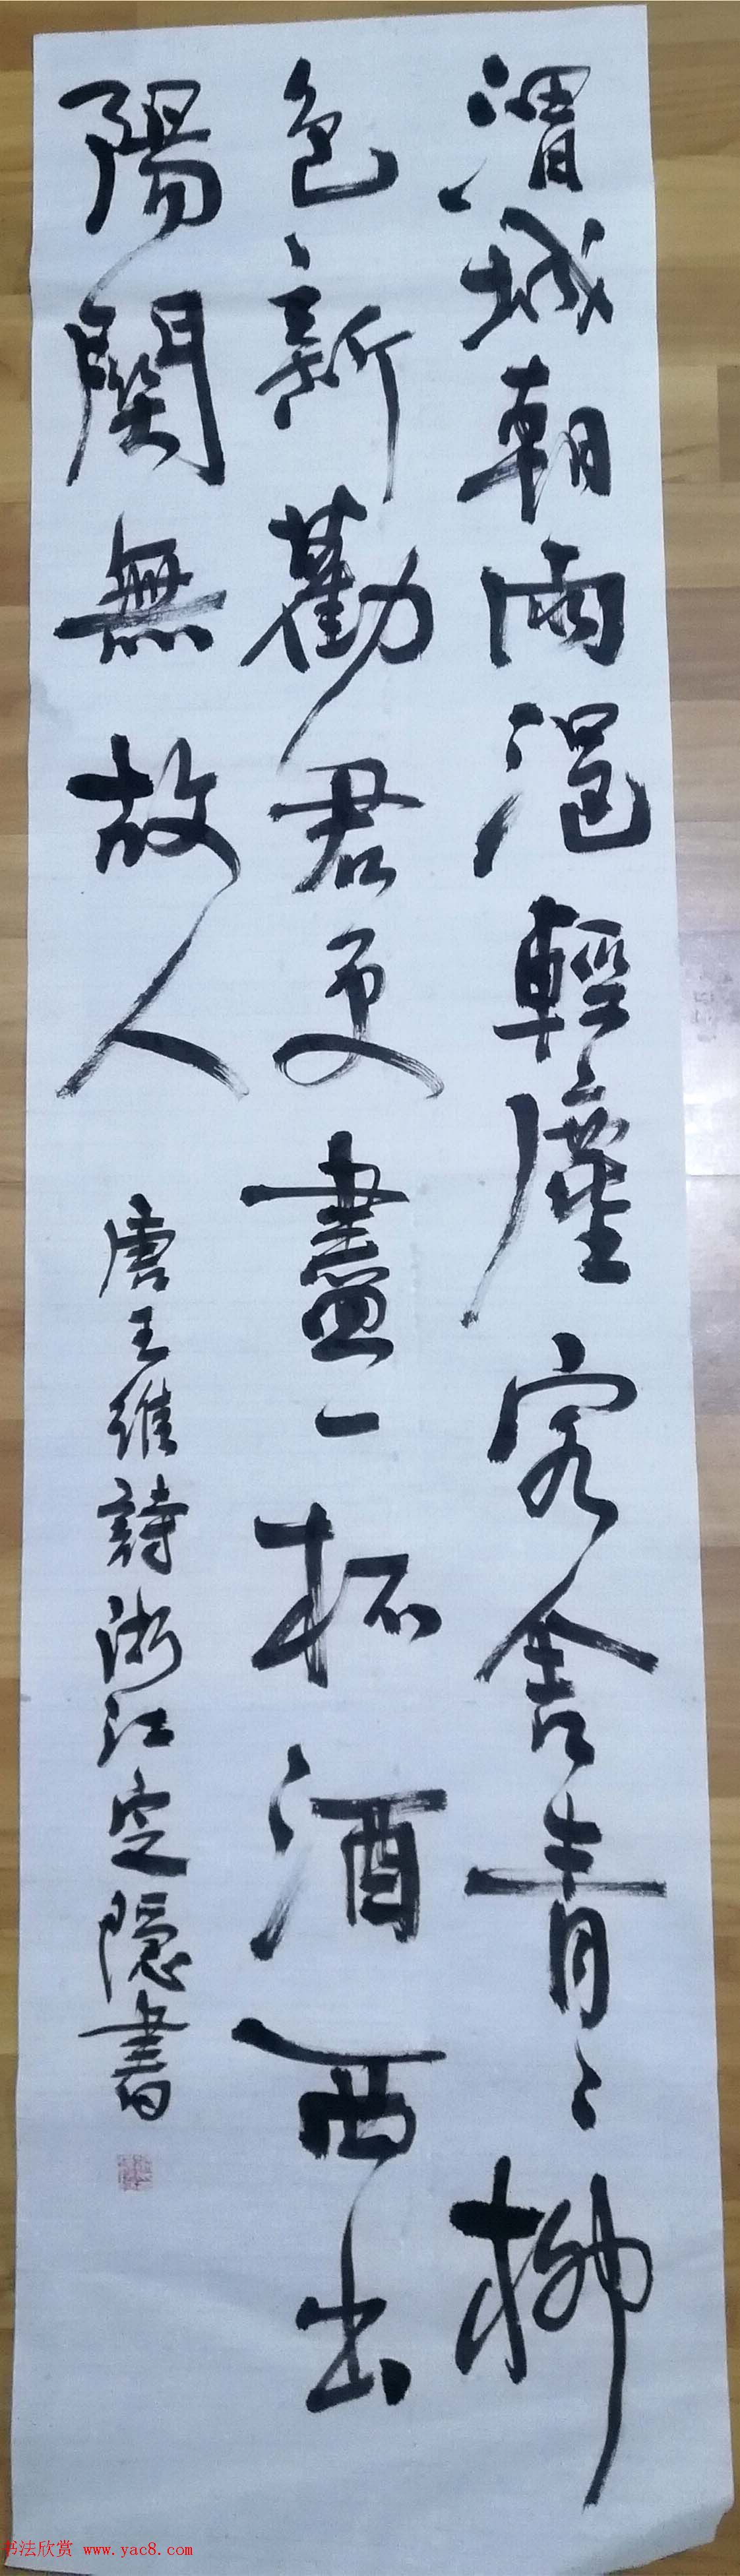 渭城朝雨浥輕塵客舍青〻柳
色新勸君更盡一杯酒西出
陽關無故人
唐王維詩浙江定隱書
书法欣赏 www.yac8.com